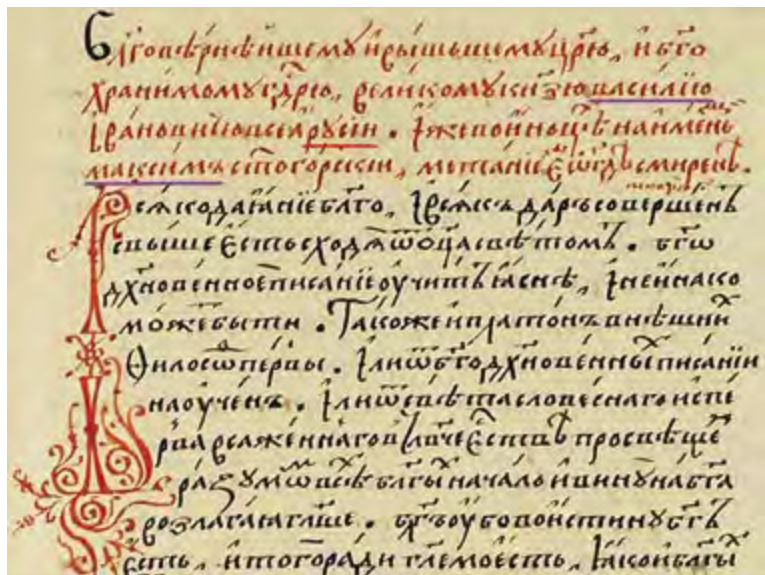 Бл҃говѣрнѣишемꙋ и҆ высшьшемꙋ цр҃ю, и҆ б҃го
хранимомꙋ гд҃рю, великомꙋ кн҃зю василїю
і҆вановичю всеѧ рꙋсіи. і҆же во и҆ноцѣ наимень
максимъ ст҃огорскїи, метанїе є҆ѿгдⷭ҇ь смирены.
Всѧко даѧнїе бл҃го, і҆ всѧкъ даръ совершенъ
свыше є҆сть сходѧ ѿ ѻ҆ц҃а свѣтомъ. бг҃ѡ
дх҃новенное писанїе оу҆читъ ꙗ҆снѣ, і҆ не и҆нако
може быти. Такоже и҆ платонъ внѣшни
ѳилосѡⷴ первы. і҆ли ѿ бг҃одх҃новенныⷯ писанїи
наоу҆ченъ. і҆ли ѿ свѣта словеснаго и҆спе
рва всаженнаго в чл҃вче є҆ствѣ просвѣще
разꙋмⷨ ѿ всѣⷯ бл҃гыⷯ начало и҆ винꙋ на бг҃а
возлагаѧ гл҃аше. бг҃ъ оу҆бо воистинꙋ бг҃ъ
є҆сть, и҆ того ради гл҃емо є҆сть, ꙗ҆ко и҆ бл҃гыⷯ